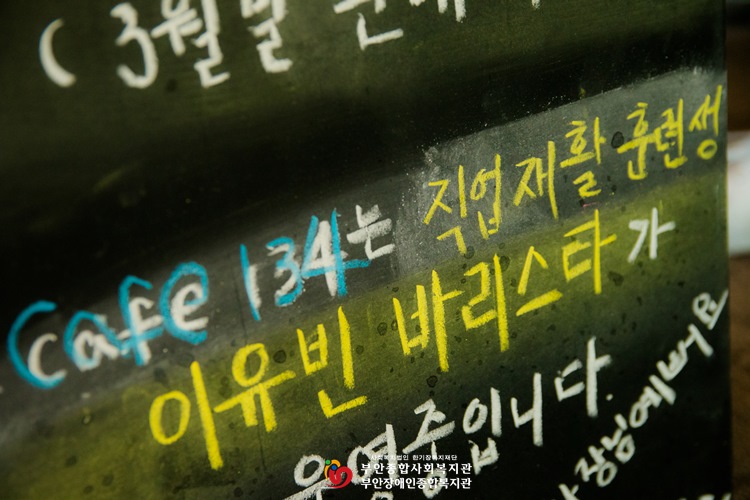 ( 3월 말
Cafe 134는 직업재활 훈련생
이유빈 바리스타가
운영중입니다.
사장님예뻐요
사회복지법인 한기장복지재단
부안종합사회복지관
부안장애인종합복지관